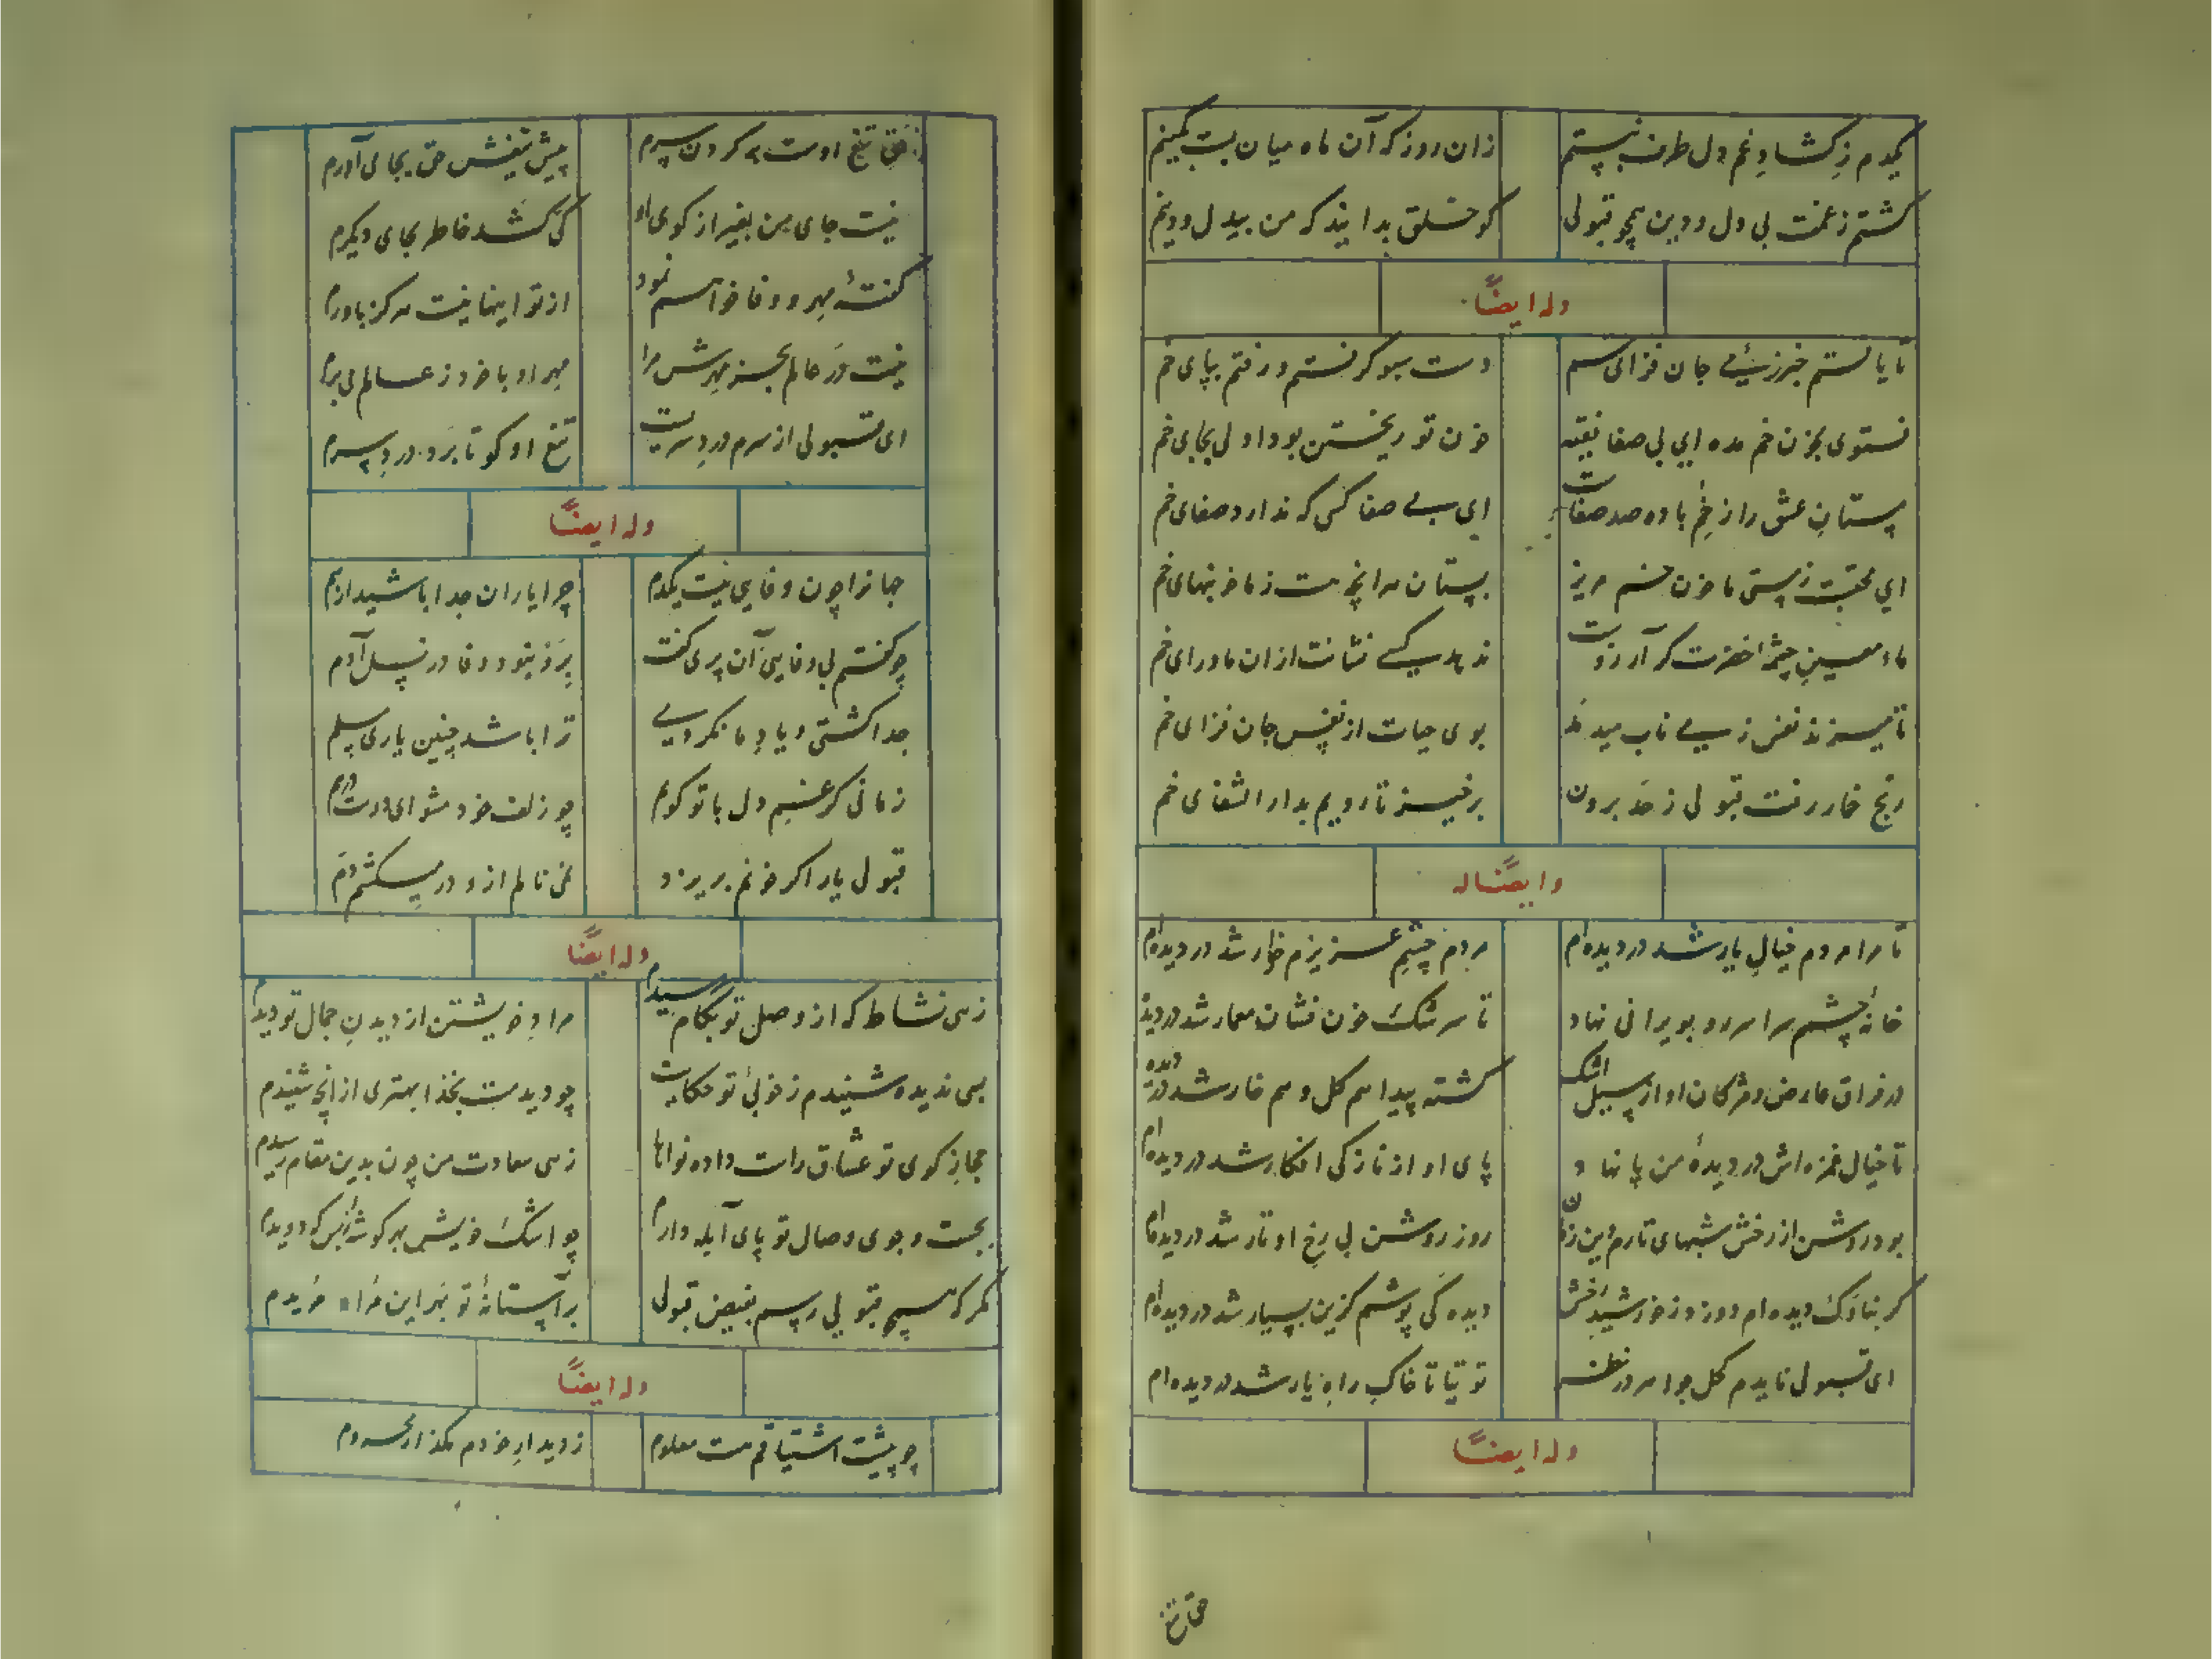 یکدم ز کشاد غم دل طرف نبستم
زان روز که آن ماه میان بست بکینم
کشتم ز غمت بی دل و دین همچو قبولی
کو خلق بدانید که من بیدل و دینم
وله ایضاً
تا یافتم خبر ز می جان فزای خم
دست سبو گرفتم و رفتم بپای خم
فتوی بخون خم مده ای بی صفا فقیه
خون تو ریختن بود اولی بجای خم
مستان عشق را ز خم باده صد صفاست
ای بی صفا کسی که ندارد صفای خم
ای محتسب ز مستی ما خون خم مریز
مستان هر آنچه هست ز ما خونبهای خم
ماء معین چشمه خضرت گر آرزوست
ندهد کسی نشانت از آن ماورای خم
تا میزند نفس ز می ناب میدمد
بوی حیات از نفس جان فزای خم
رنج خمار رفت قبولی ز حد برون
برخیز تا رویم بدار الشفای خم
وایضاً له
تا مرا مردم خیال یار شد در دیده‌ام
مردم چشم عزیزم خوار شد در دیده‌ام
خانه چشمم سراسر رو بویرانی نهاد
تا سرشک خون فشان معمار شد در دیده
در فراق عارض و مژکان او از سیل اشک
کشته پیدا هم کل و هم خار شد در دیده
تا خیال غمزه‌اش در دیده من پا نهاد
پای او از نازکی افکار شد در دیده‌ام
بود روشن از رخش شبهای تارم این زمان
روز روشن بی رخ او تار شد در دیده‌ام
کر بناوک دیده‌ام دوزد ز خورشید رخش
دیده کی پوشم کزین بسیار شد در دیده‌ام
ای قبولی ناید م کحل جواهر در نظر
توتیا تا خاک راه یار شد در دیده‌ام
وله ایضاً
حق تیغ
حق تیغ اوست بر کردن سرم
پیش تیغش حق بجای آورم
نیست جای من بغیر از کوی او
کی کشد خاطر بجای دیکرم
کفته مهر و وفا خواهم نمود
از تو اینها نیست هرکز باورم
نیست در عالم بجز مهرش مرا
مهر او با خود ز عالم می برم
ای قبولی از سرم درد سریست
تیغ او کو تا برد درد سرم
وله ایضاً
جهانرا چون وفایی نیست یکدم
چرا یاران جدا باشید از هم
چو کفتم بی وفایی آن پری کفت
پرو نبود وفا در نسل آدم
جدا کشتی و یاد ما نکردی
ترا باشد چنین یاری مسلم
زمانی کز غم دل با تو کویم
چو زلف خود مشو ای دوست درهم
قبولی یار اکر خونم بریزد
نمی نالم ازو در میکشم دم
وله ایضاً
زهی نشاط که از وصل تو بکام رسیدم
مراد خویشتن از دیدن جمال تو دیدم
بسی ندیده شنیدم ز خوبی تو حکایت
چو دیدمت بخدا بهتری از انچه شنیدم
حجاز کوی تو عشاق راست داده نواها
زهی سعادت من چون بدین مقام رسیدم
بجست و جوی وصال تو پای آبله دارم
چو اشک خویش بهر کوشه بس که دویدم
کمر که همچو قبولی رسم بفیض قبولی
بر آستانه تو بهر این مراد مریدم
وله ایضاً
چو پیشت اشتیاقم هست معلوم
ز دیدار خودم مکذار محروم